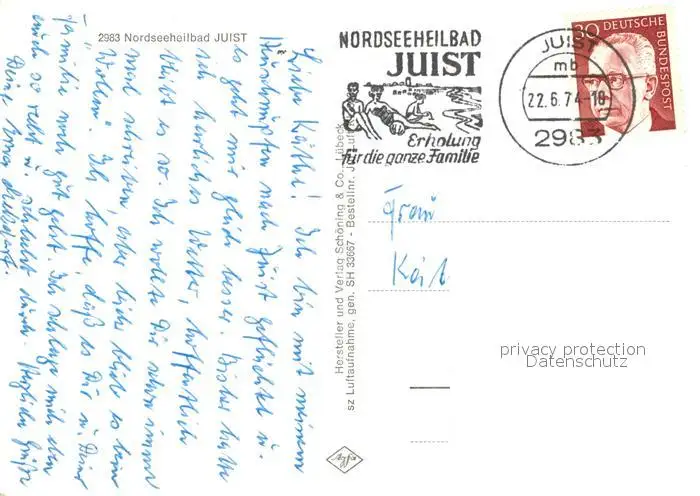 2983 Nordseeheilbad JUIST
NORDSEEHEILBAD
JUIST
Erholung
für die ganze Familie
JUIST
mb
22.6.74-18
2983
30 DEUTSCHE
BUNDESPOST
Liebe Käthe! Ich bin mit meinem
nach Juist geflüchtet u.
es geht mir gleich besser. Bisher hatte
ich herrliches Wetter, hoffentlich
bleibt es so. Ich wollte Dir schon immer
mal schreiben, aber leider blieb es beim
"Wollen". Ich hoffe, daß es Dir u. Deiner
Familie noch gut geht. Ich schlage mich eben
auch so recht u. schlecht durch. Herzliche Grüße
Deine
Hersteller und Verlag Schöning & Co., Lübeck
sz Luftaufnahme, gen. SH 33667 - Bestellnr.
Frau
Kät
privacy protection
Datenschutz
Agfa